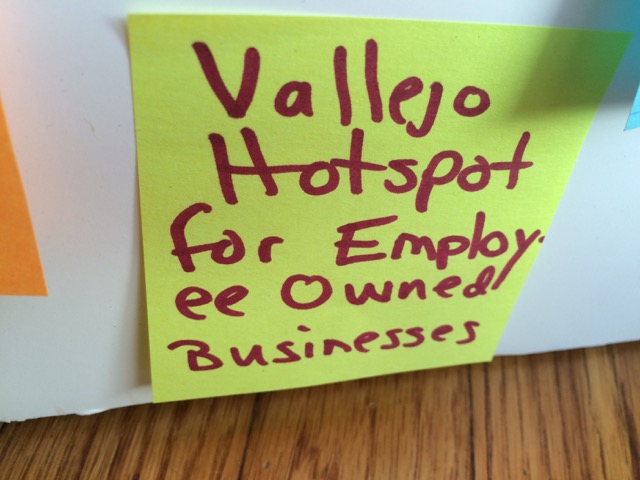 Vallejo
Hotspot
for Employ-
ee Owned
Businesses